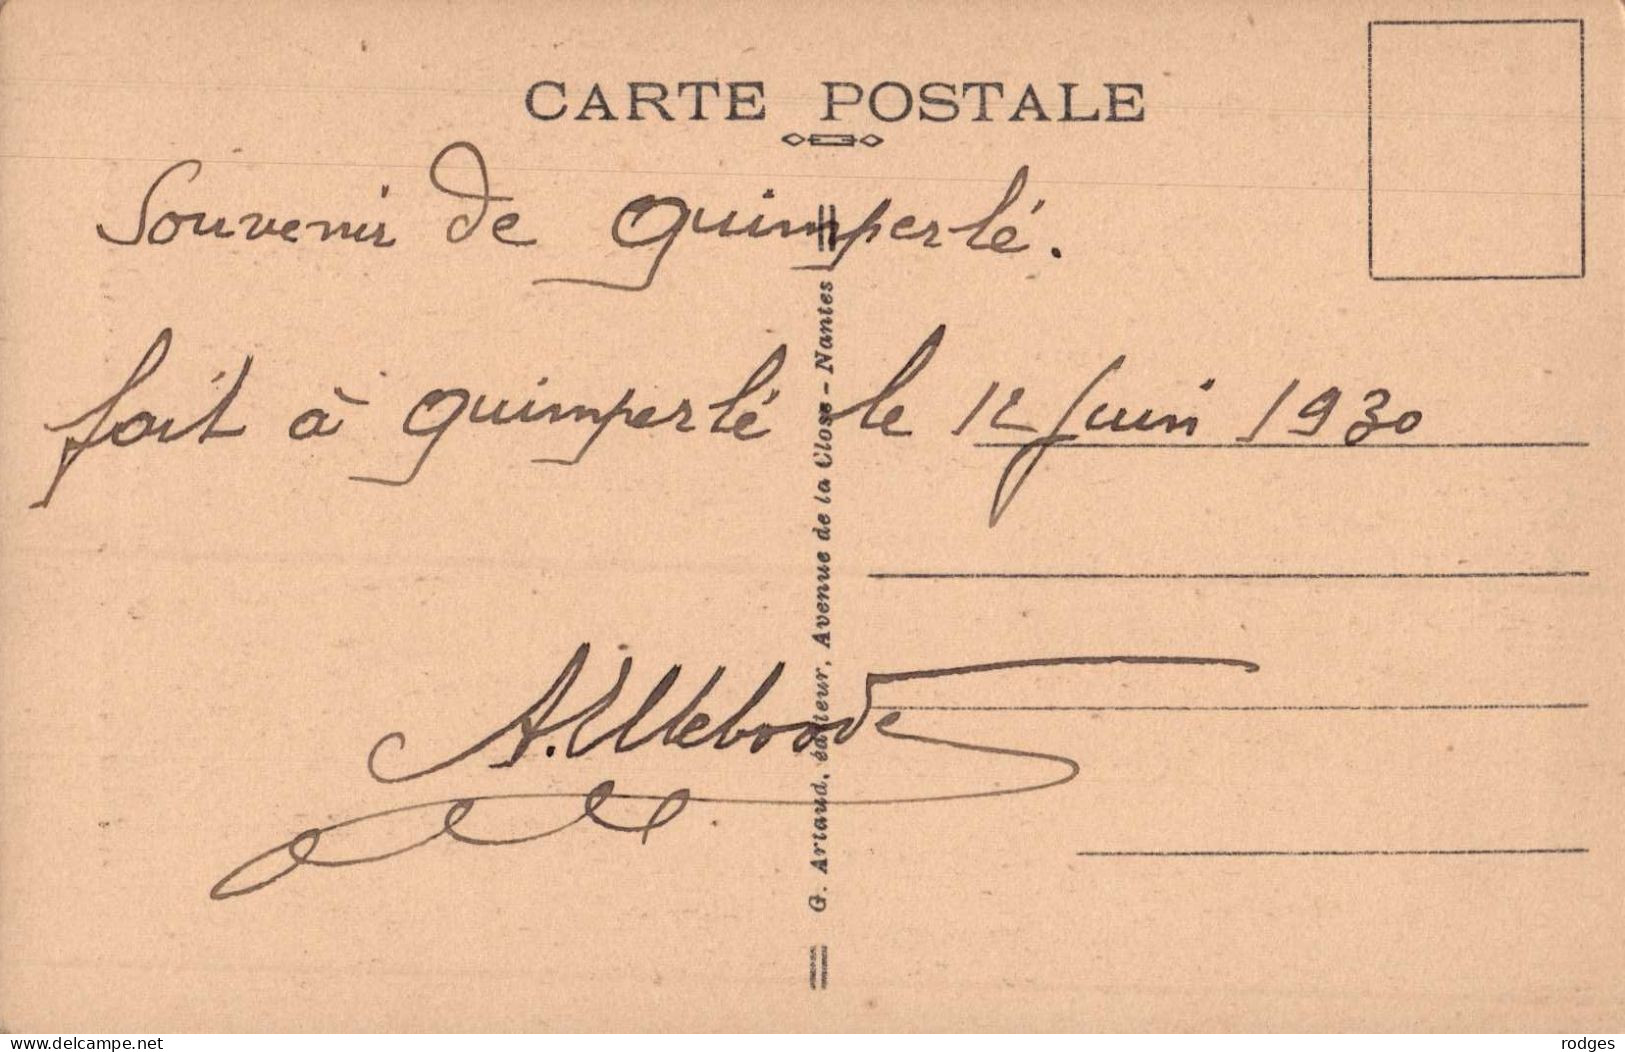 CARTE POSTALE
Souvenir de Quimperlé.
fait à Quimperlé le 12 Juin 1930
G. Artaud, éditeur, Avenue de la Close - Nantes
www.delcampe.net
rodges